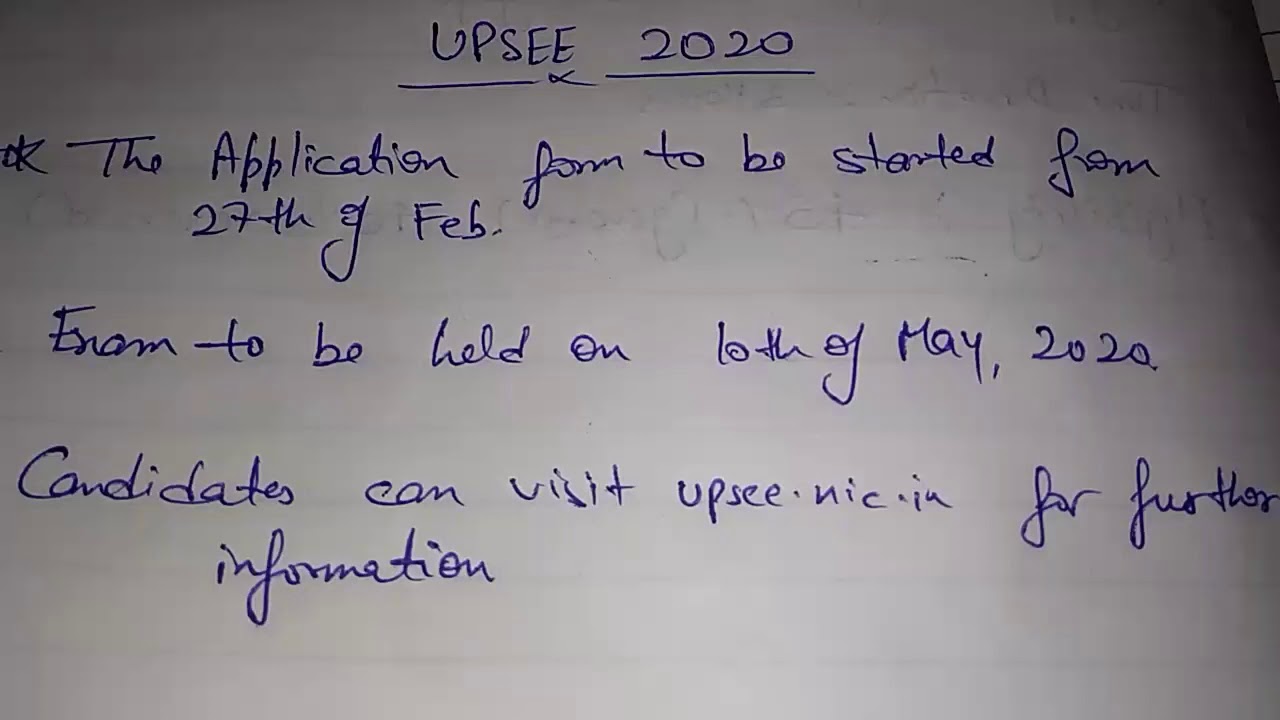 UPSEE 2020
* The Application form to be started from
27th of Feb.
Exam to be held on 10th of May, 2020
Candidates can visit upsee.nic.in for further
information